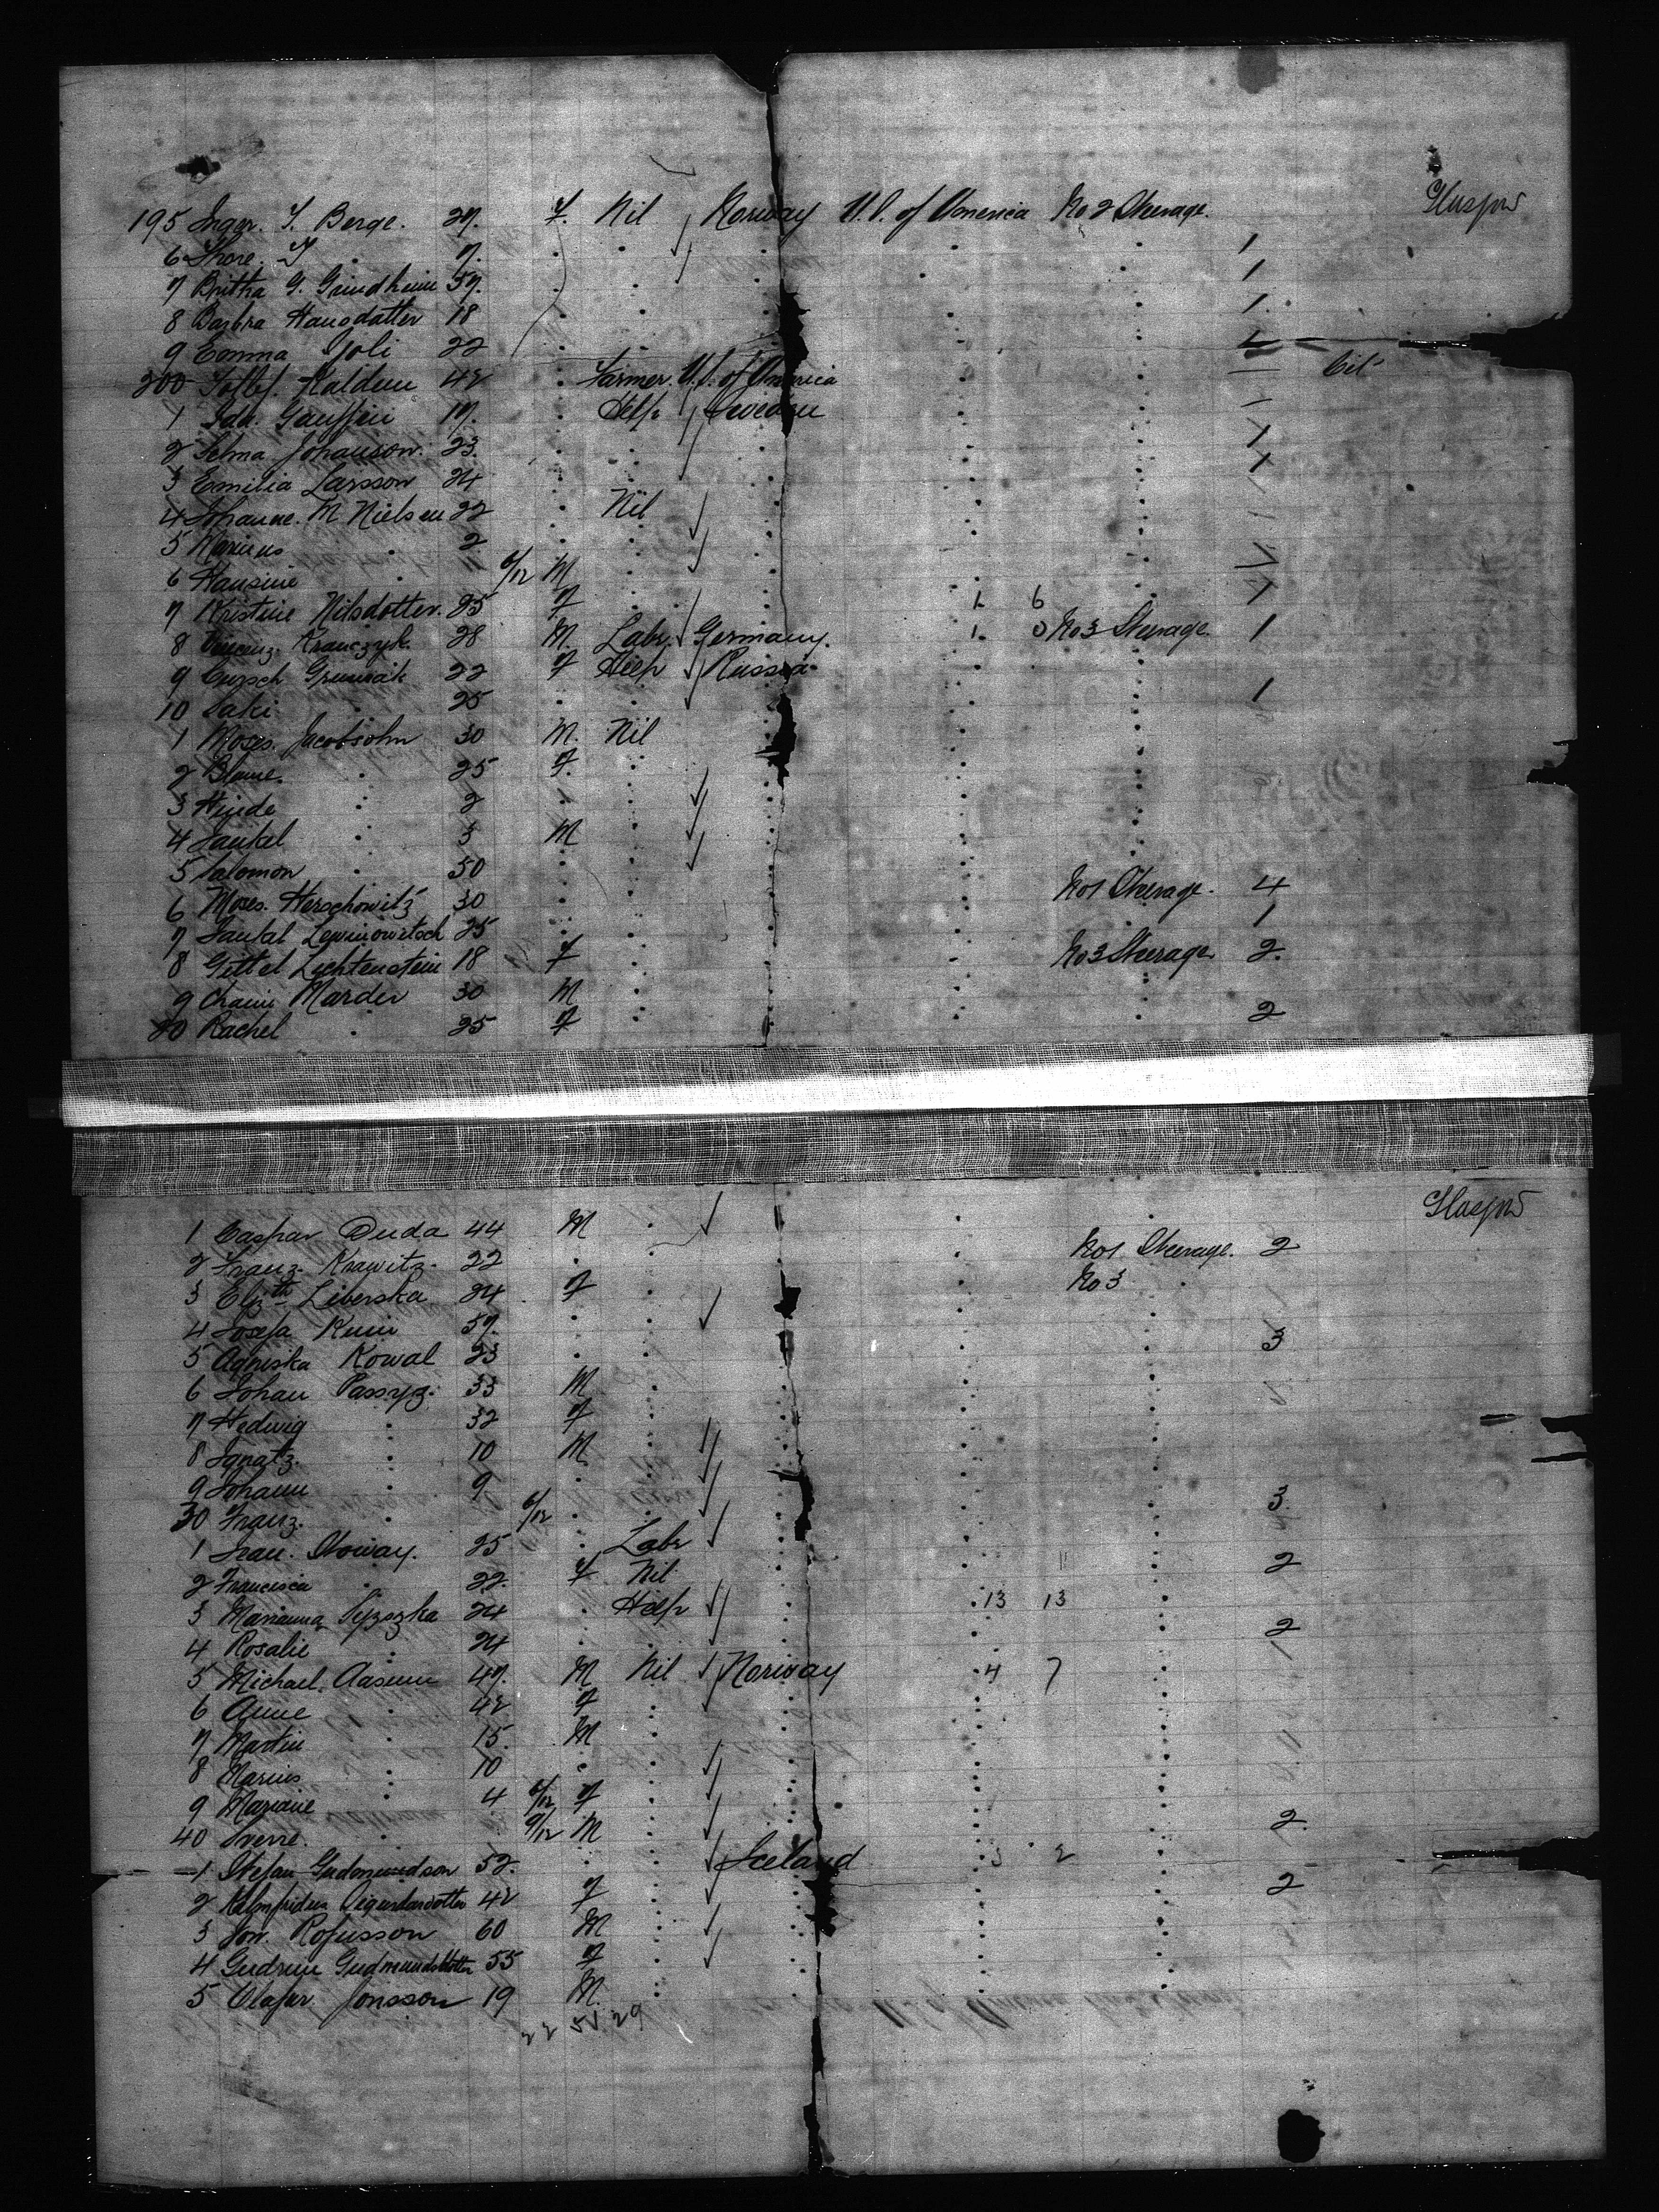 Glasgow
195 Inger. T. Berge. 27. F. Nil Norway U.S. of America No 2 Steerage.
6 Thore. T 7. 1
7 Brittha G. Grindheim 57. 1
8 Barbra Hansdatter 18 1.
9 Emma Yoli 22
200 42 Farmer. U.S. of America
1 Ida. 17. Help Sweden
2 Selma Johanson. 23. 1
3 Emilia Larsson 24 1
4 Johanne. M Nielsen 22 Nil
5 Marinus 2
6 Hansine 11/12 M
7 Kristine Nilsdotter. 25 F 1 6
8 Krawczyk. 28 M. Labr. Germany. 1 0 No 3 Steerage 1
9 22 F Help Russia
10 25 1
1 Moses. Jacobsohn 30 M. Nil
2 Blume. 25 F.
3 Hinde 2
4 Jankel 3 M
5 Salomon 50
6 Moses. Herschowitz 30 No 1 Steerage. 4
7 Jankel 25 1
8 Gittel Lichtenstein 18 F No 3 Steerage 2.
9 Chaim Marder 30 M
20 Rachel 25 F 2
Glasgow
1 Caspar Duda 44 M
2 Franz. Krawitz. 22 No 1 Steerage. 2
3 Elizth Liberska 24 F No 3
4 Josefa 57.
5 Agniska Kowal 23 3
6 Johan Passyz. 33 M
7 Hedwig 32 F
8 Ignatz. 10 M
9 Johann 9
30 Franz. 6/12 3.
1 Stoway. 25 Labr
2 Francisca 22. F Nil 2
3 Marianna 24 Help 13 13
4 Rosalie 24 2
5 Michael. Aasum 47. M Nil Norway 4 7
6 Anne 42 F
7 Martin 15. M
8 Marius 10
9 Mariane 4 6/12 F
40 Sverre. 9/12 M 2.
1 Stefan Gudmundson 52. Iceland 3 2
2 42 F 2
3 Jon. 60 M
4 Gudrun Gudmundsdotter 55 F
5 Olafur Jonsson 19 M.
22 51 29